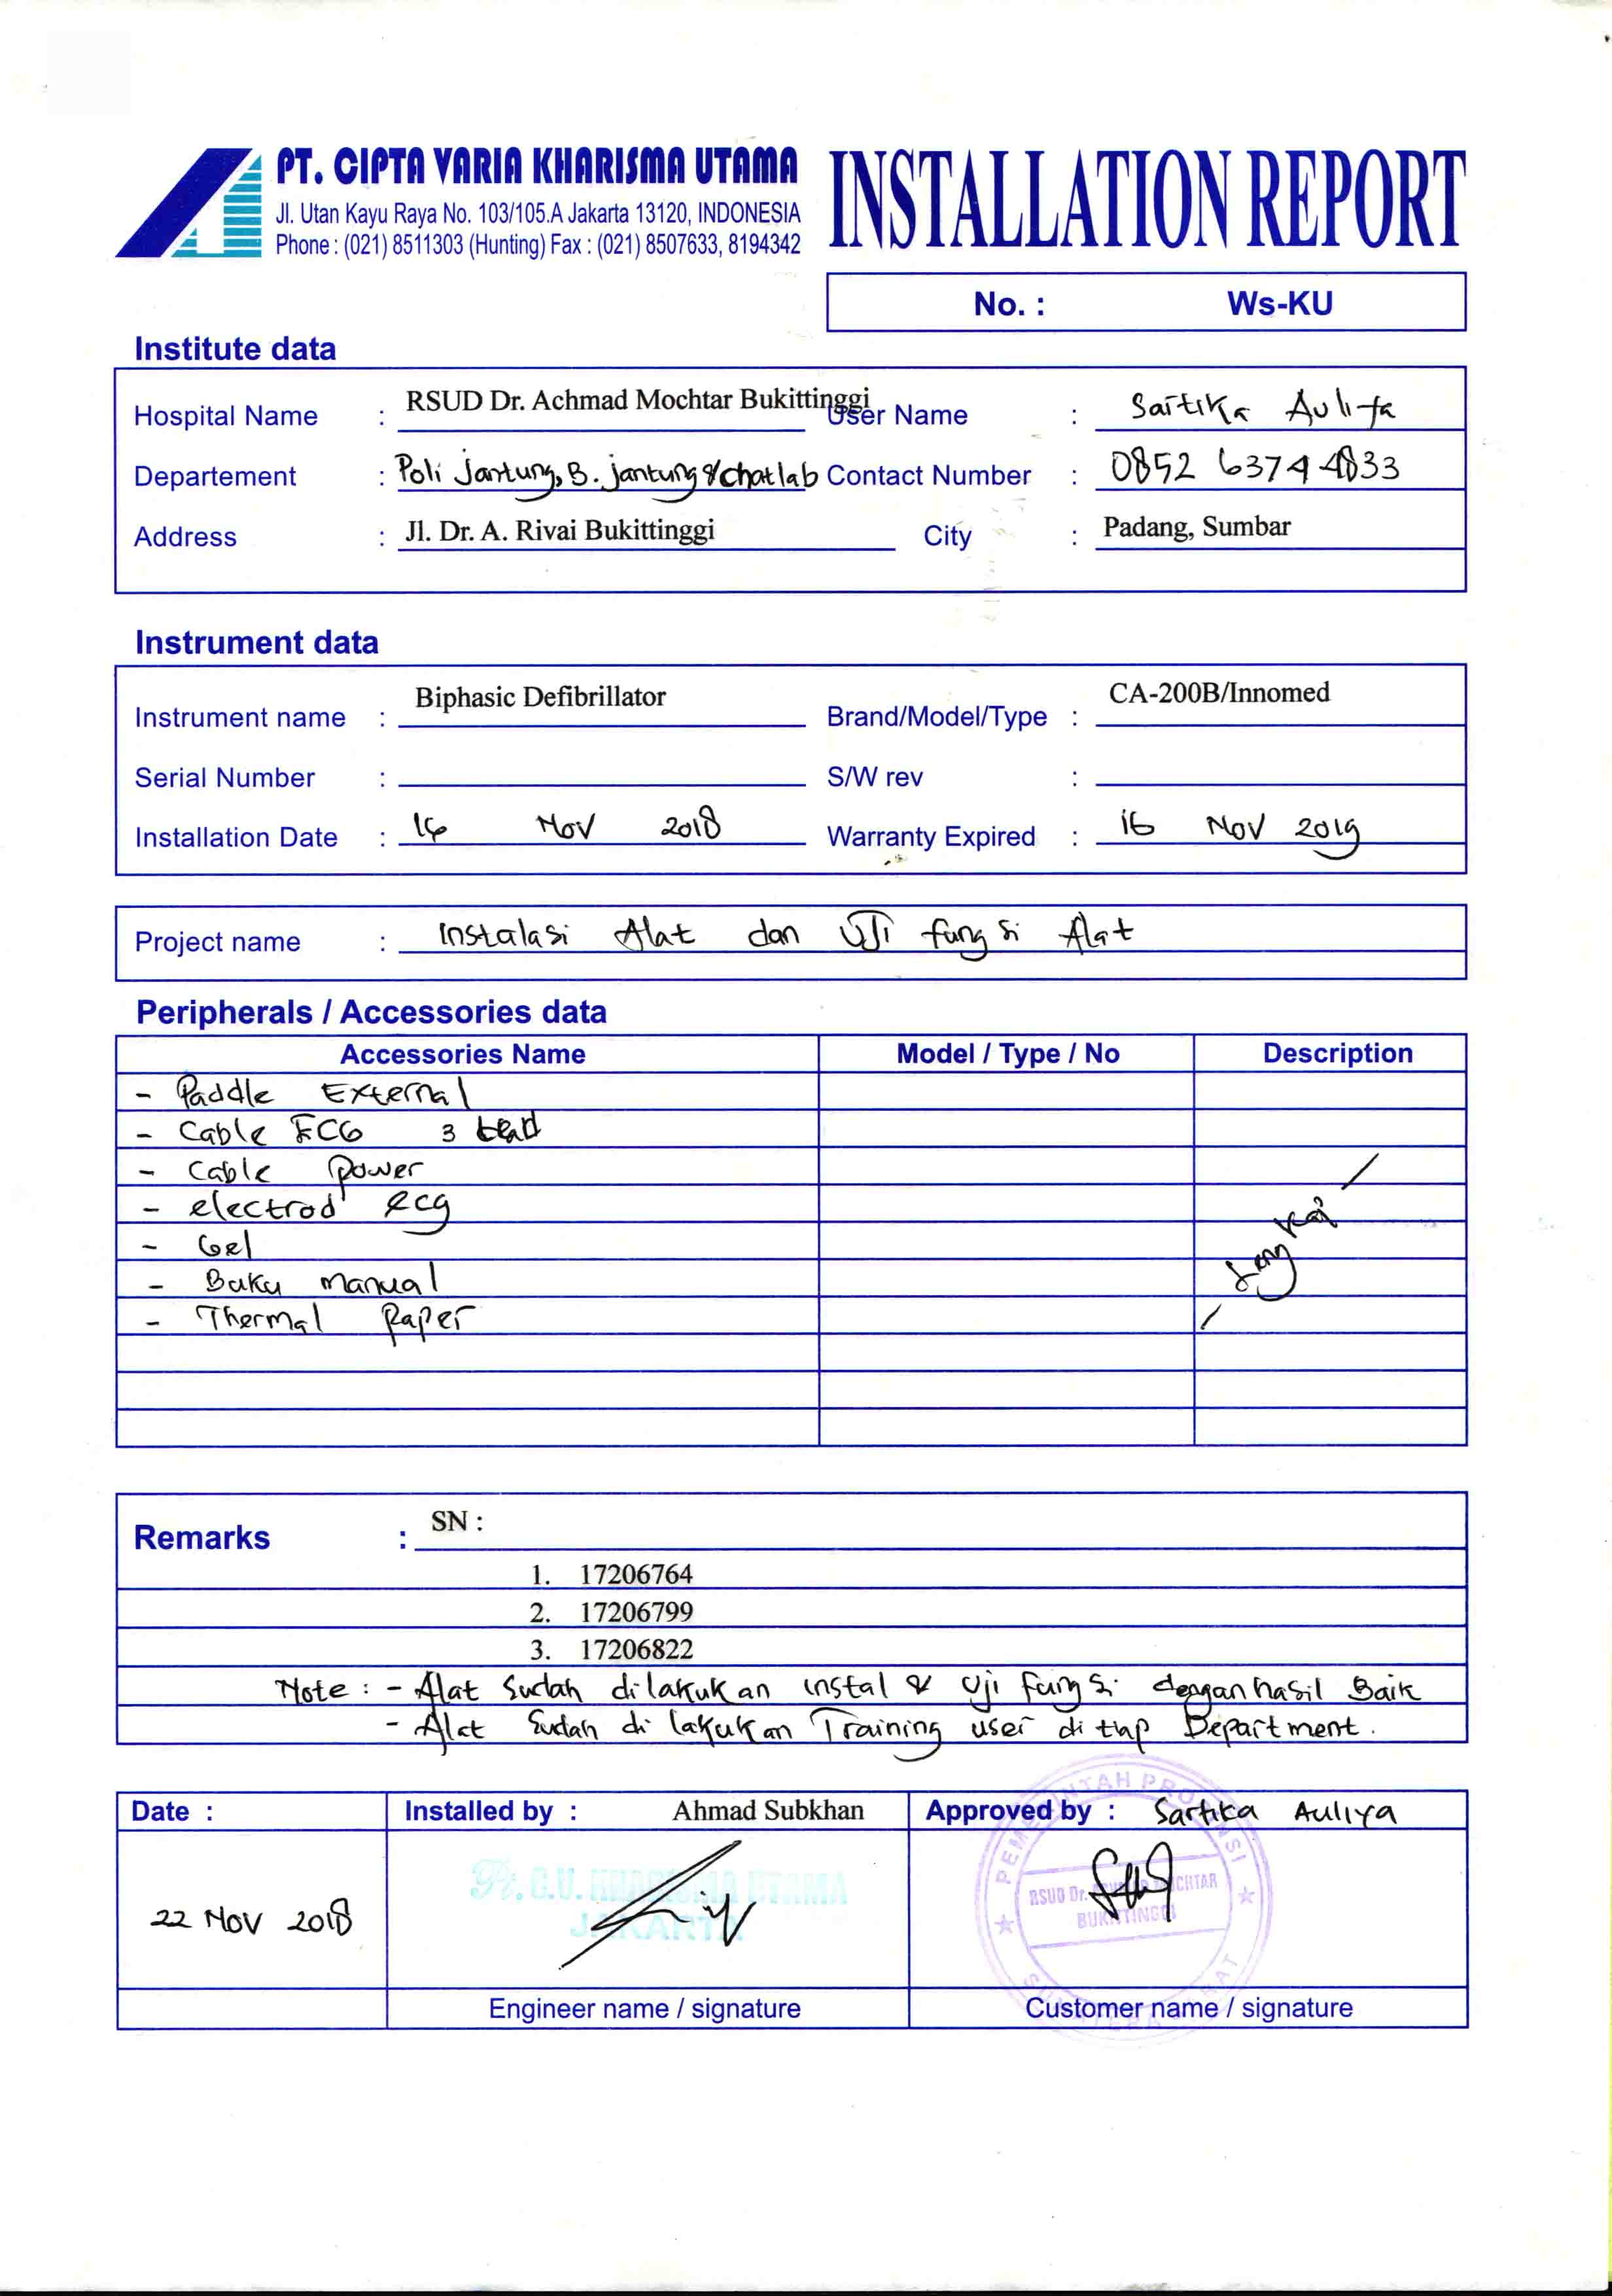 PT. CIPTA VARIA KHARISMA UTAMA
Jl. Utan Kayu Raya No. 103/105.A Jakarta 13120, INDONESIA
Phone : (021) 8511303 (Hunting) Fax : (021) 8507633, 8194342
INSTALLATION REPORT
No. : Ws-KU
Institute data
Hospital Name : RSUD Dr. Achmad Mochtar Bukittinggi User Name : Sartika Auliya
Departement : Poli Jantung, B. jantung & chatlab Contact Number : 0852 6374 4833
Address : Jl. Dr. A. Rivai Bukittinggi City : Padang, Sumbar
Instrument data
Instrument name : Biphasic Defibrillator Brand/Model/Type : CA-200B/Innomed
Serial Number : S/W rev :
Installation Date : 16 Nov 2018 Warranty Expired : 16 Nov 2019
Project name : Instalasi Alat dan Uji fungsi Alat
Peripherals / Accessories data
Accessories Name Model / Type / No Description
- Paddle External
- Cable ECG 3 lead
- Cable Power
- electrod ecg
- Gel
- Buku manual
- Thermal Paper
- Lengkap -
Remarks : SN :
1. 17206764
2. 17206799
3. 17206822
Note : - Alat sudah dilakukan instal & Uji fungsi dengan hasil Baik
- Alat sudah di lakukan Training user di tiap Department.
Date : Installed by : Ahmad Subkhan Approved by : Sartika Auliya
22 Nov 2018
Pt. C.V. KHARISMA UTAMA
JAKARTA
PEMERINTAH PROVINSI
RSUD Dr. ACHMAD MOCHTAR
BUKITTINGGI
SUMATERA BARAT
Engineer name / signature Customer name / signature